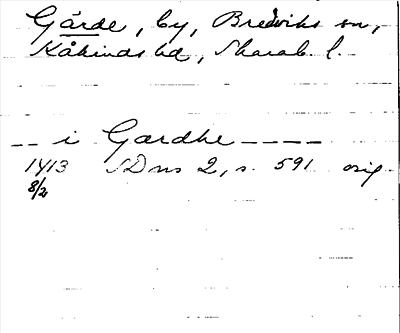 Gärde, by, Breviks sn,
Kåkinds hd, Skarab. l.
-- i Gardhe ----
1413 SDns 2, s. 591 orig
8/2